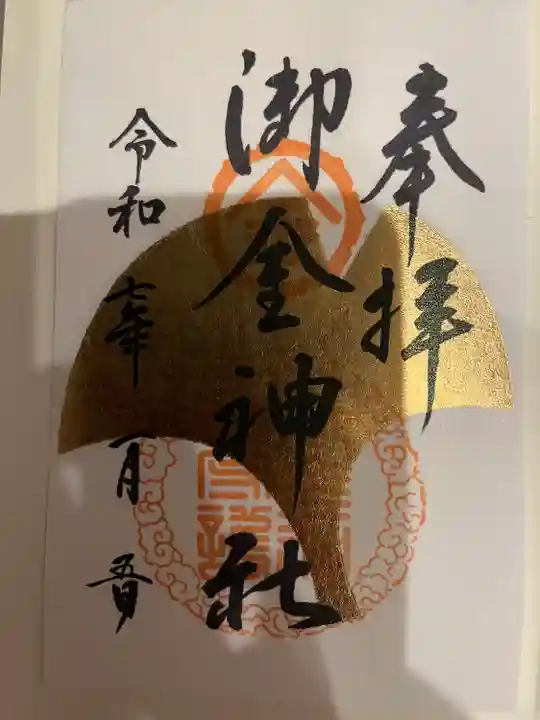 奉拝
御金神社
令和七年一月五日